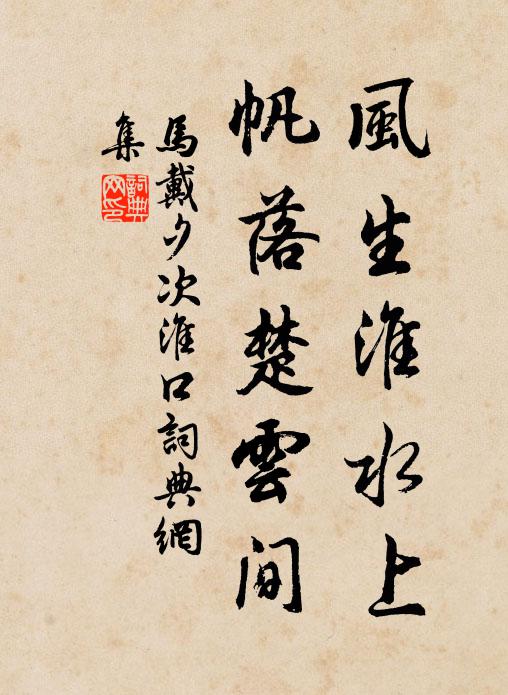 風生淮水上
帆落楚雲間
馬戴夕次淮口詞典網
集
詞典網印